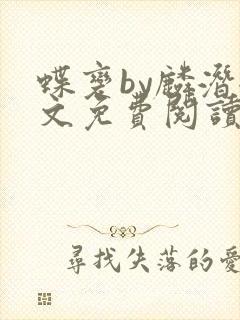 蝶变by麟潜
文免費閱讀
尋找失落的愛